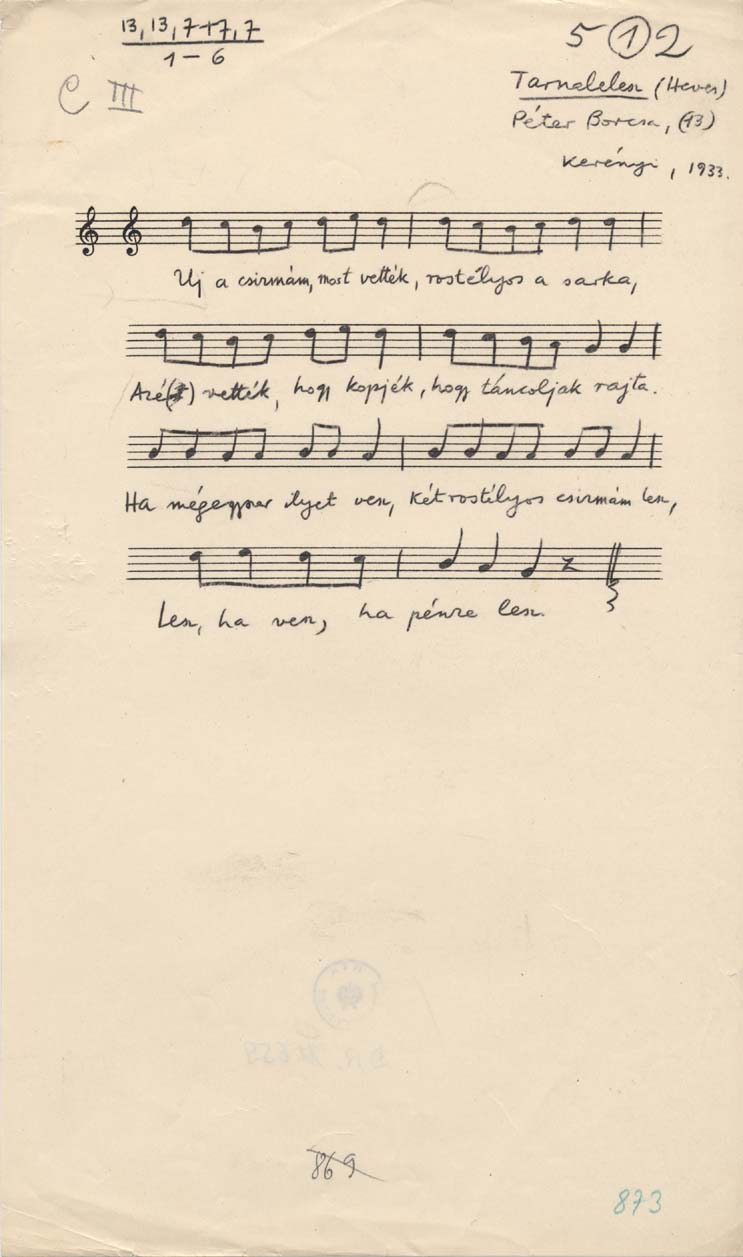 13, 13, 7+7, 7
1 – 6
5 (1) 2
C III
Tarnalelesz (Heves)
Péter Borcsa, (13)
Kerényi, 1933.
Uj a csirmám, most vették, rostélyos a sarka,
Azé(t) vették, hogy kopjék, hogy táncoljak rajta.
Ha mégegyszer ilyet vesz, két rostélyos csirmám lesz,
Lesz, ha vesz, ha pénze lesz.
869
873